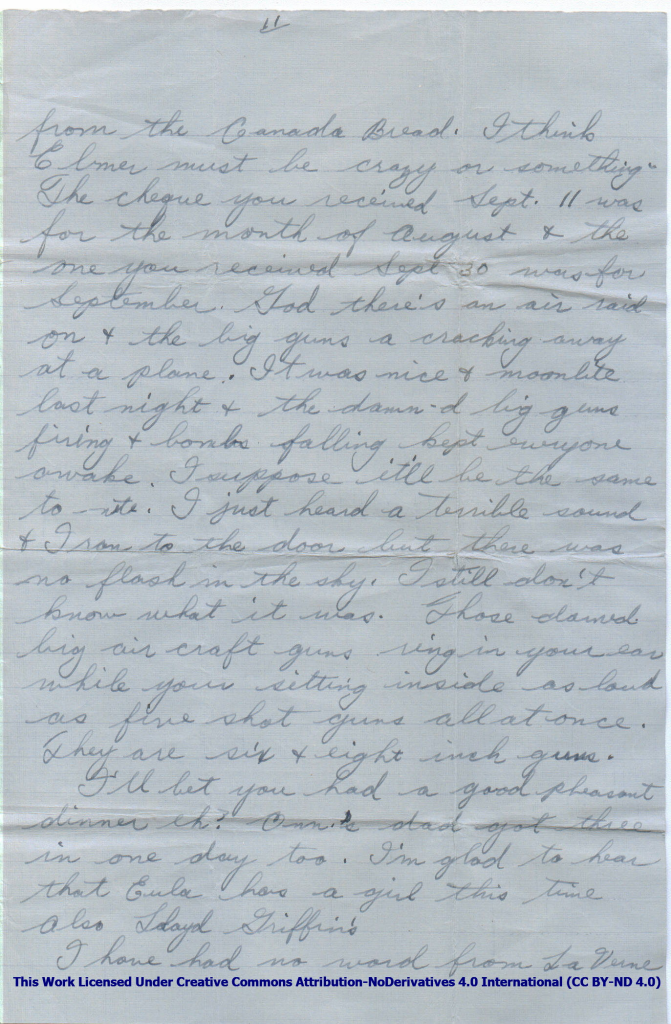 11
from the Canada Bread. I think
Elmer must be crazy or something.
The cheque you received Sept. 11 was
for the month of August & the
one you received Sept 30 was for
September. God there's an air raid
on & the big guns a cracking away
at a plane. It was nice & moonlite
last night & the damn-d big guns
firing & bombs falling kept everyone
awake. I suppose it'll be the same
to-nite. I just heard a terrible sound
& I ran to the door but there was
no flash in the sky. I still don't
know what it was. Those damed
big air craft guns ring in your ear
while your sitting inside as loud
as five shot guns all at once.
They are six & eight inch guns.
I'll bet you had a good pheasant
dinner eh? Ann's dad got three
in one day too. I'm glad to hear
that Eula has a girl this time
also Lloyd Griffin's
I have had no word from La Verne
This Work Licensed Under Creative Commons Attribution-NoDerivatives 4.0 International (CC BY-ND 4.0)